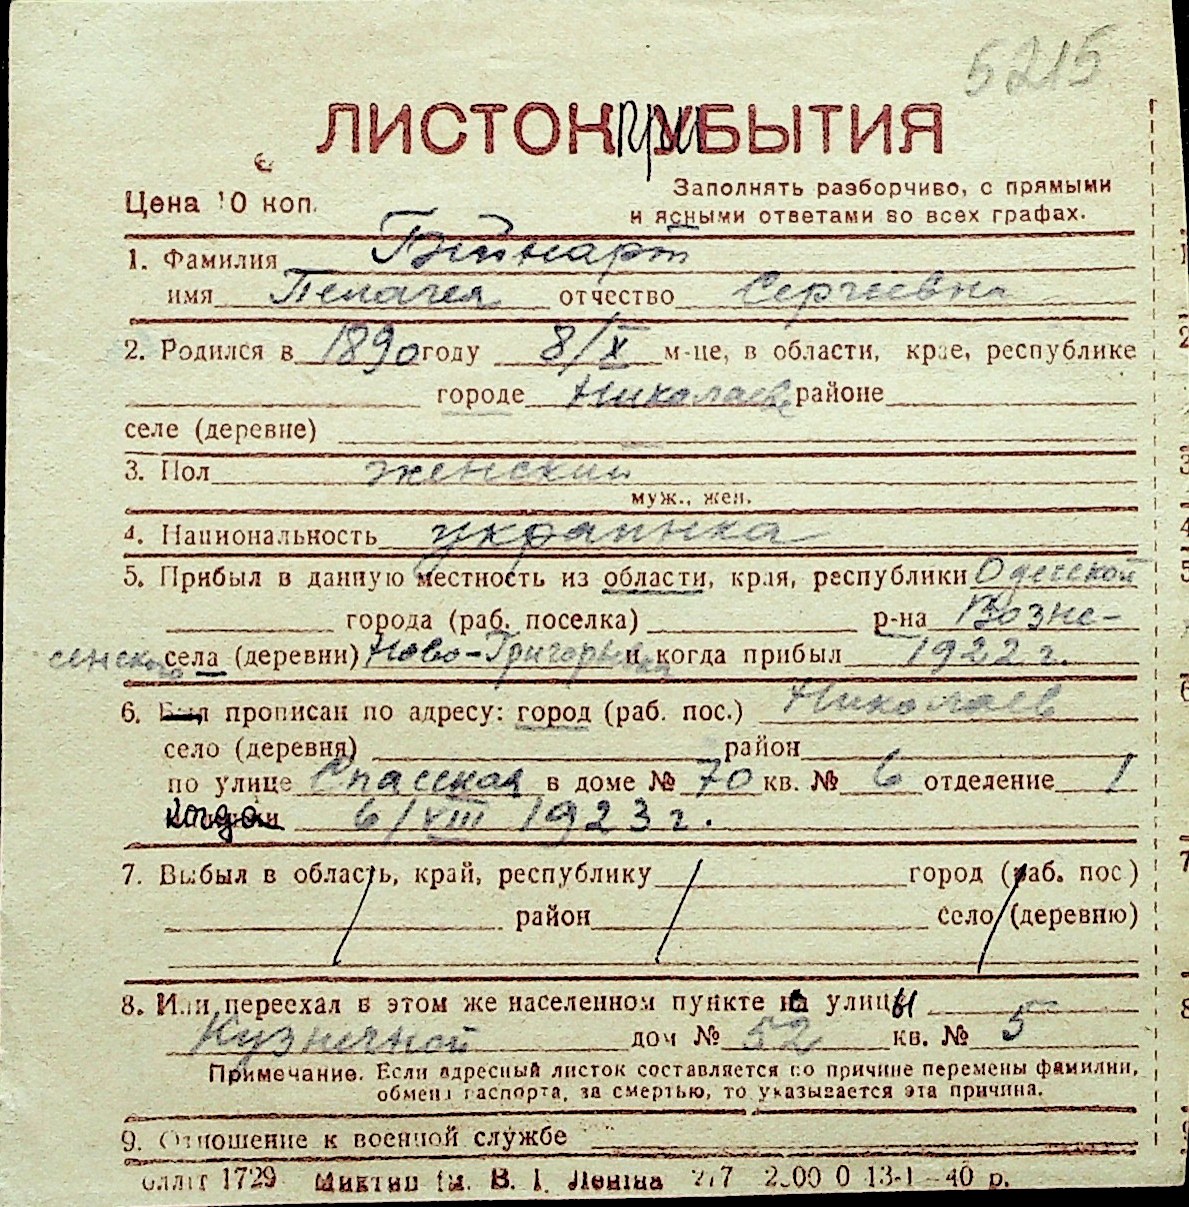 5215
ЛИСТОК при УБЫТИЯ
Цена 10 коп.
Заполнять разборчиво, с прямыми
и ясными ответами во всех графах.
1. Фамилия Гейнарт
имя Пелагея отчество Сергеевна
2. Родился в 1890 году 8/X м-це, в области, крае, республике
городе Николаеве районе
селе (деревне)
3. Пол женский
муж., жен.
4. Национальность украинка
5. Прибыл в данную местность из области, края, республики Одесской
города (раб. поселка) р-на Возне-
сенского села (деревни) Ново-Григорьевка и когда прибыл 1922 г.
6. Был прописан по адресу: город (раб. пос.) Николаев
село (деревня) район
по улице Спасская в доме № 70 кв. № 6 отделение 1
когда 6/VIII 1923 г.
7. Выбыл в область, край, республику город (раб. пос)
район село (деревню)
8. Или переехал в этом же населенном пункте на улицы
Кузнечной дом № 52 кв. № 5
Примечание. Если адресный листок составляется по причине перемены фамилии,
обмена паспорта, за смертью, то указывается эта причина.
9. Отношение к военной службе
1729 В. І. Леніна 13-І—40 р.